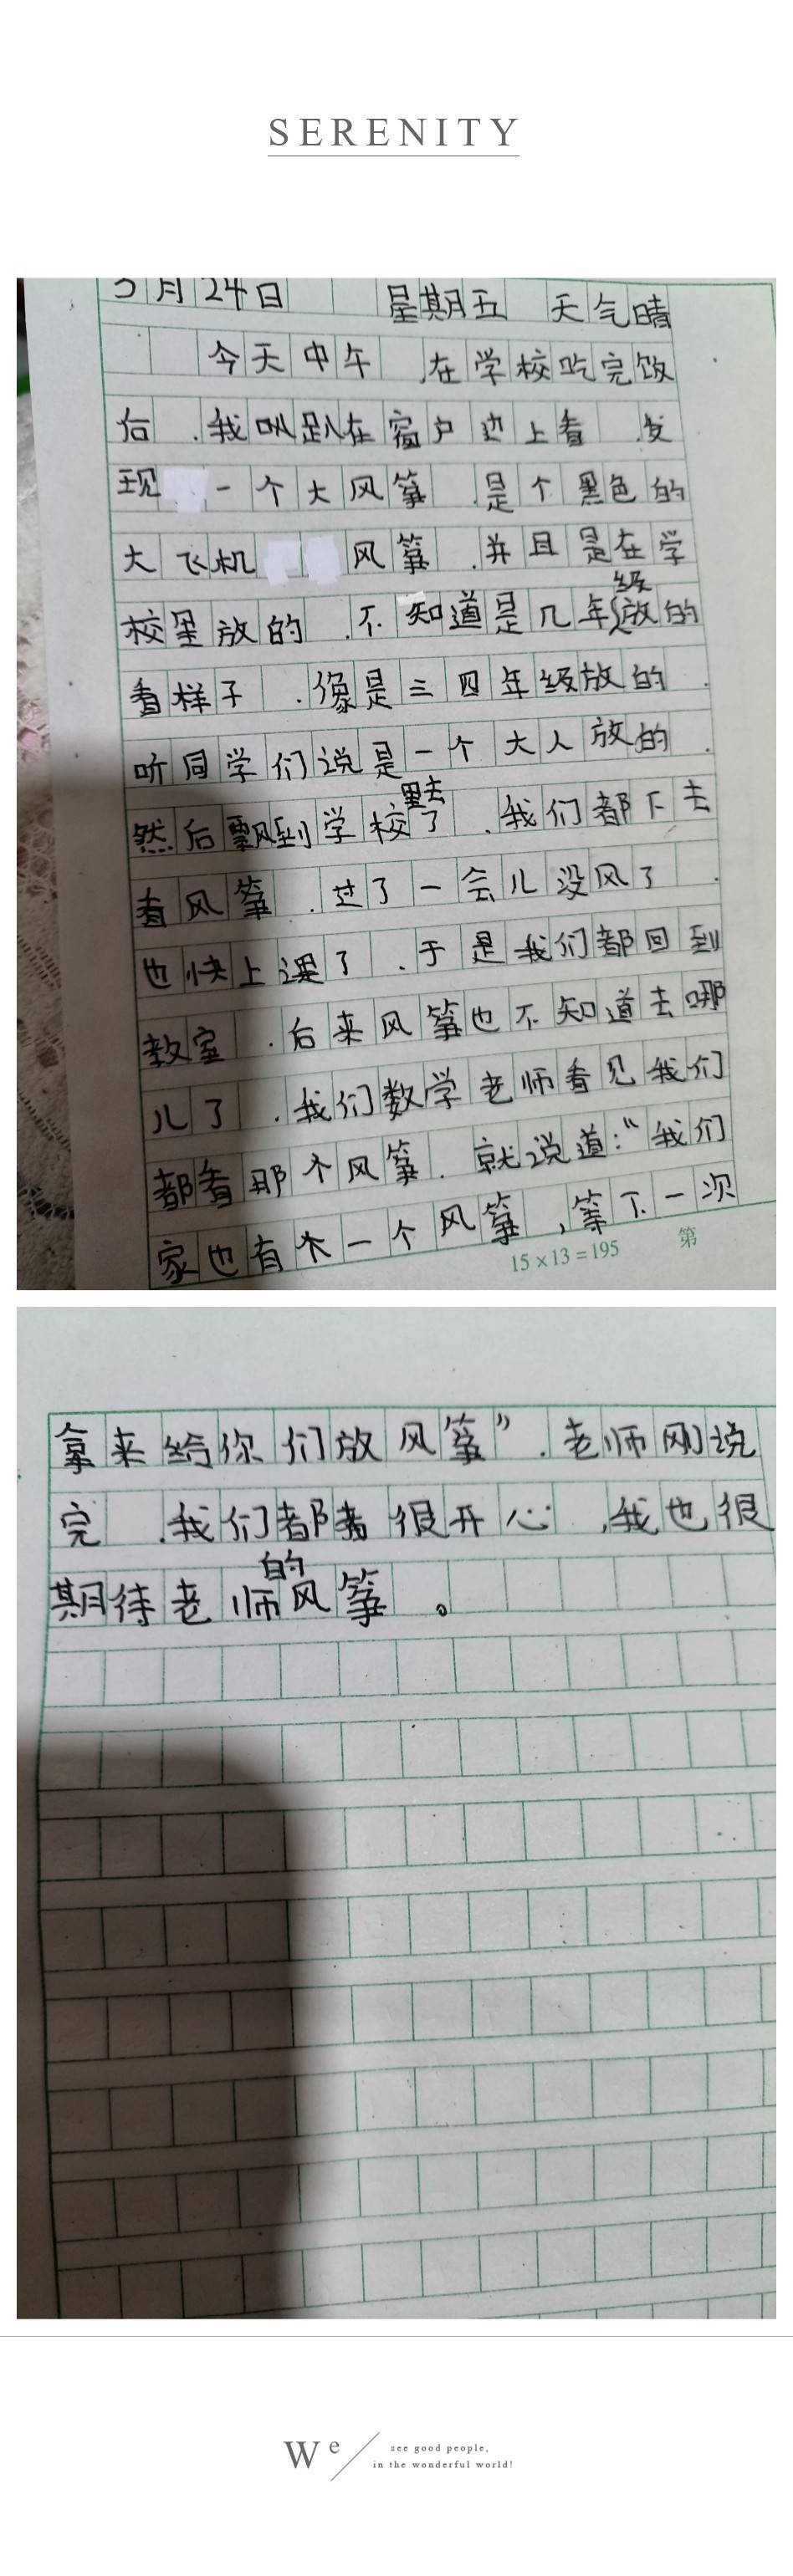 SERENITY
3月24日 星期五 天气晴
今天中午,在学校吃完饭
后,我叫趴在窗户边上看,发
现一个大风筝,是个黑色的
大飞机风筝,并且是在学
校里放的,不知道是几年级放的
看样子,像是三四年级放的,
听同学们说是一个大人放的,
然后飘到学校里去了,我们都下去
看风筝,过了一会儿没风了,
也快上课了,于是我们都回到
教室,后来风筝也不知道去哪
儿了,我们数学老师看见我们
都看那个风筝,就说道:“我们
家也有一个风筝,等下一次
15×13=195 第
拿来给你们放风筝”,老师刚说
完,我们都很开心,我也很
期待老师的风筝。
We
see good people,
in the wonderful world!